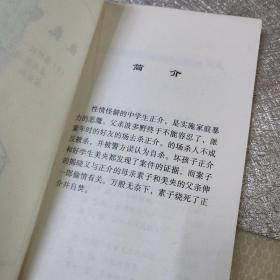 简 介
性情怪僻的中学生正介，是实施家庭暴
力的恶魔。父亲波多野终于不能容忍了，派
童年时的好友的场去杀正介。的场杀人不成
反被杀，并被警方误认为自杀。坏孩子正介
和好学生美央都发现了案件的证据。而案子
的揭晓又与正介的母亲素子和美央的父亲伸
一郎偷情有关。万般无奈下，素子烧死了正
介并自焚。